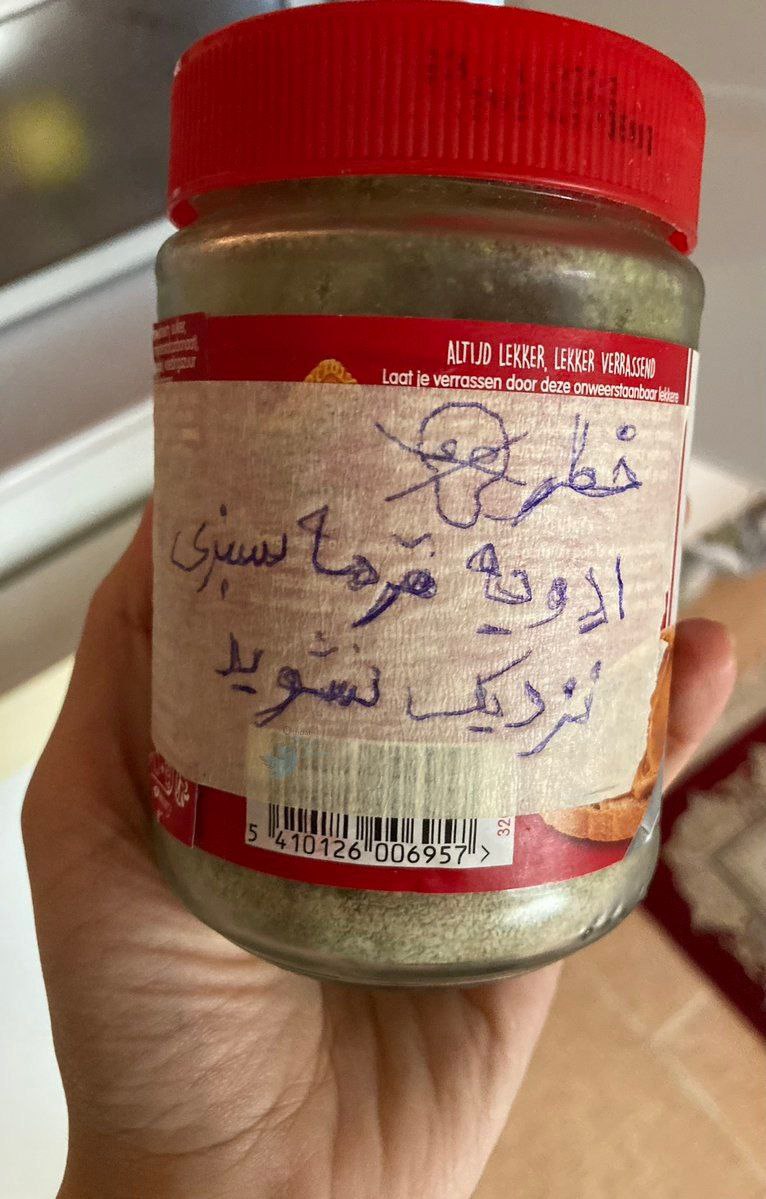 ALTIJD LEKKER, LEKKER VERRASSEND
Laat je verrassen door deze onweerstaanbaar lekkere
خطر
ادویه قرمه سبزی
نزدیک نشوید
5 410126 006957 >
32